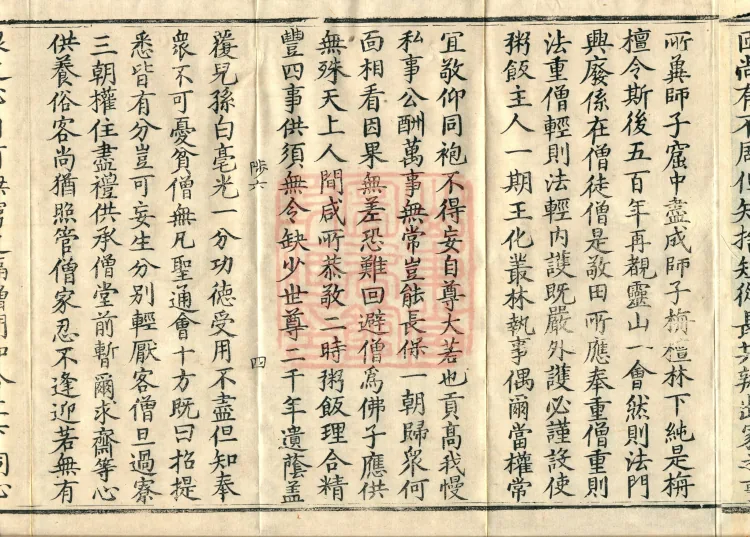 尚有不周但知捨短從長共辦出家之事
所冀師子窟中盡成師子栴檀林下純是栴
檀令斯後五百年再覩靈山一會然則法門
興廢係在僧徒僧是敬田所應奉重僧重則
法重僧輕則法輕內護既嚴外護必謹設使
粥飯主人一期王化叢林執事偶爾當權常
宜敬仰同袍不得妄自尊大若也貢高我慢
私事公酬萬事無常豈能長保一朝歸衆何
面相看因果無差恐難回避僧爲佛子應供
無殊天上人間咸所恭敬二時粥飯理合精
豐四事供須無令缺少世尊二千年遺蔭盖
陟六 四
覆兒孫白毫光一分功德受用不盡但知奉
衆不可憂貧僧無凡聖通會十方既曰招提
悉皆有分豈可妄生分別輕厭客僧旦過寮
三朝權住盡禮供承僧堂前暫爾求齋等心
供養俗客尚猶照管僧家忍不逢迎若無有